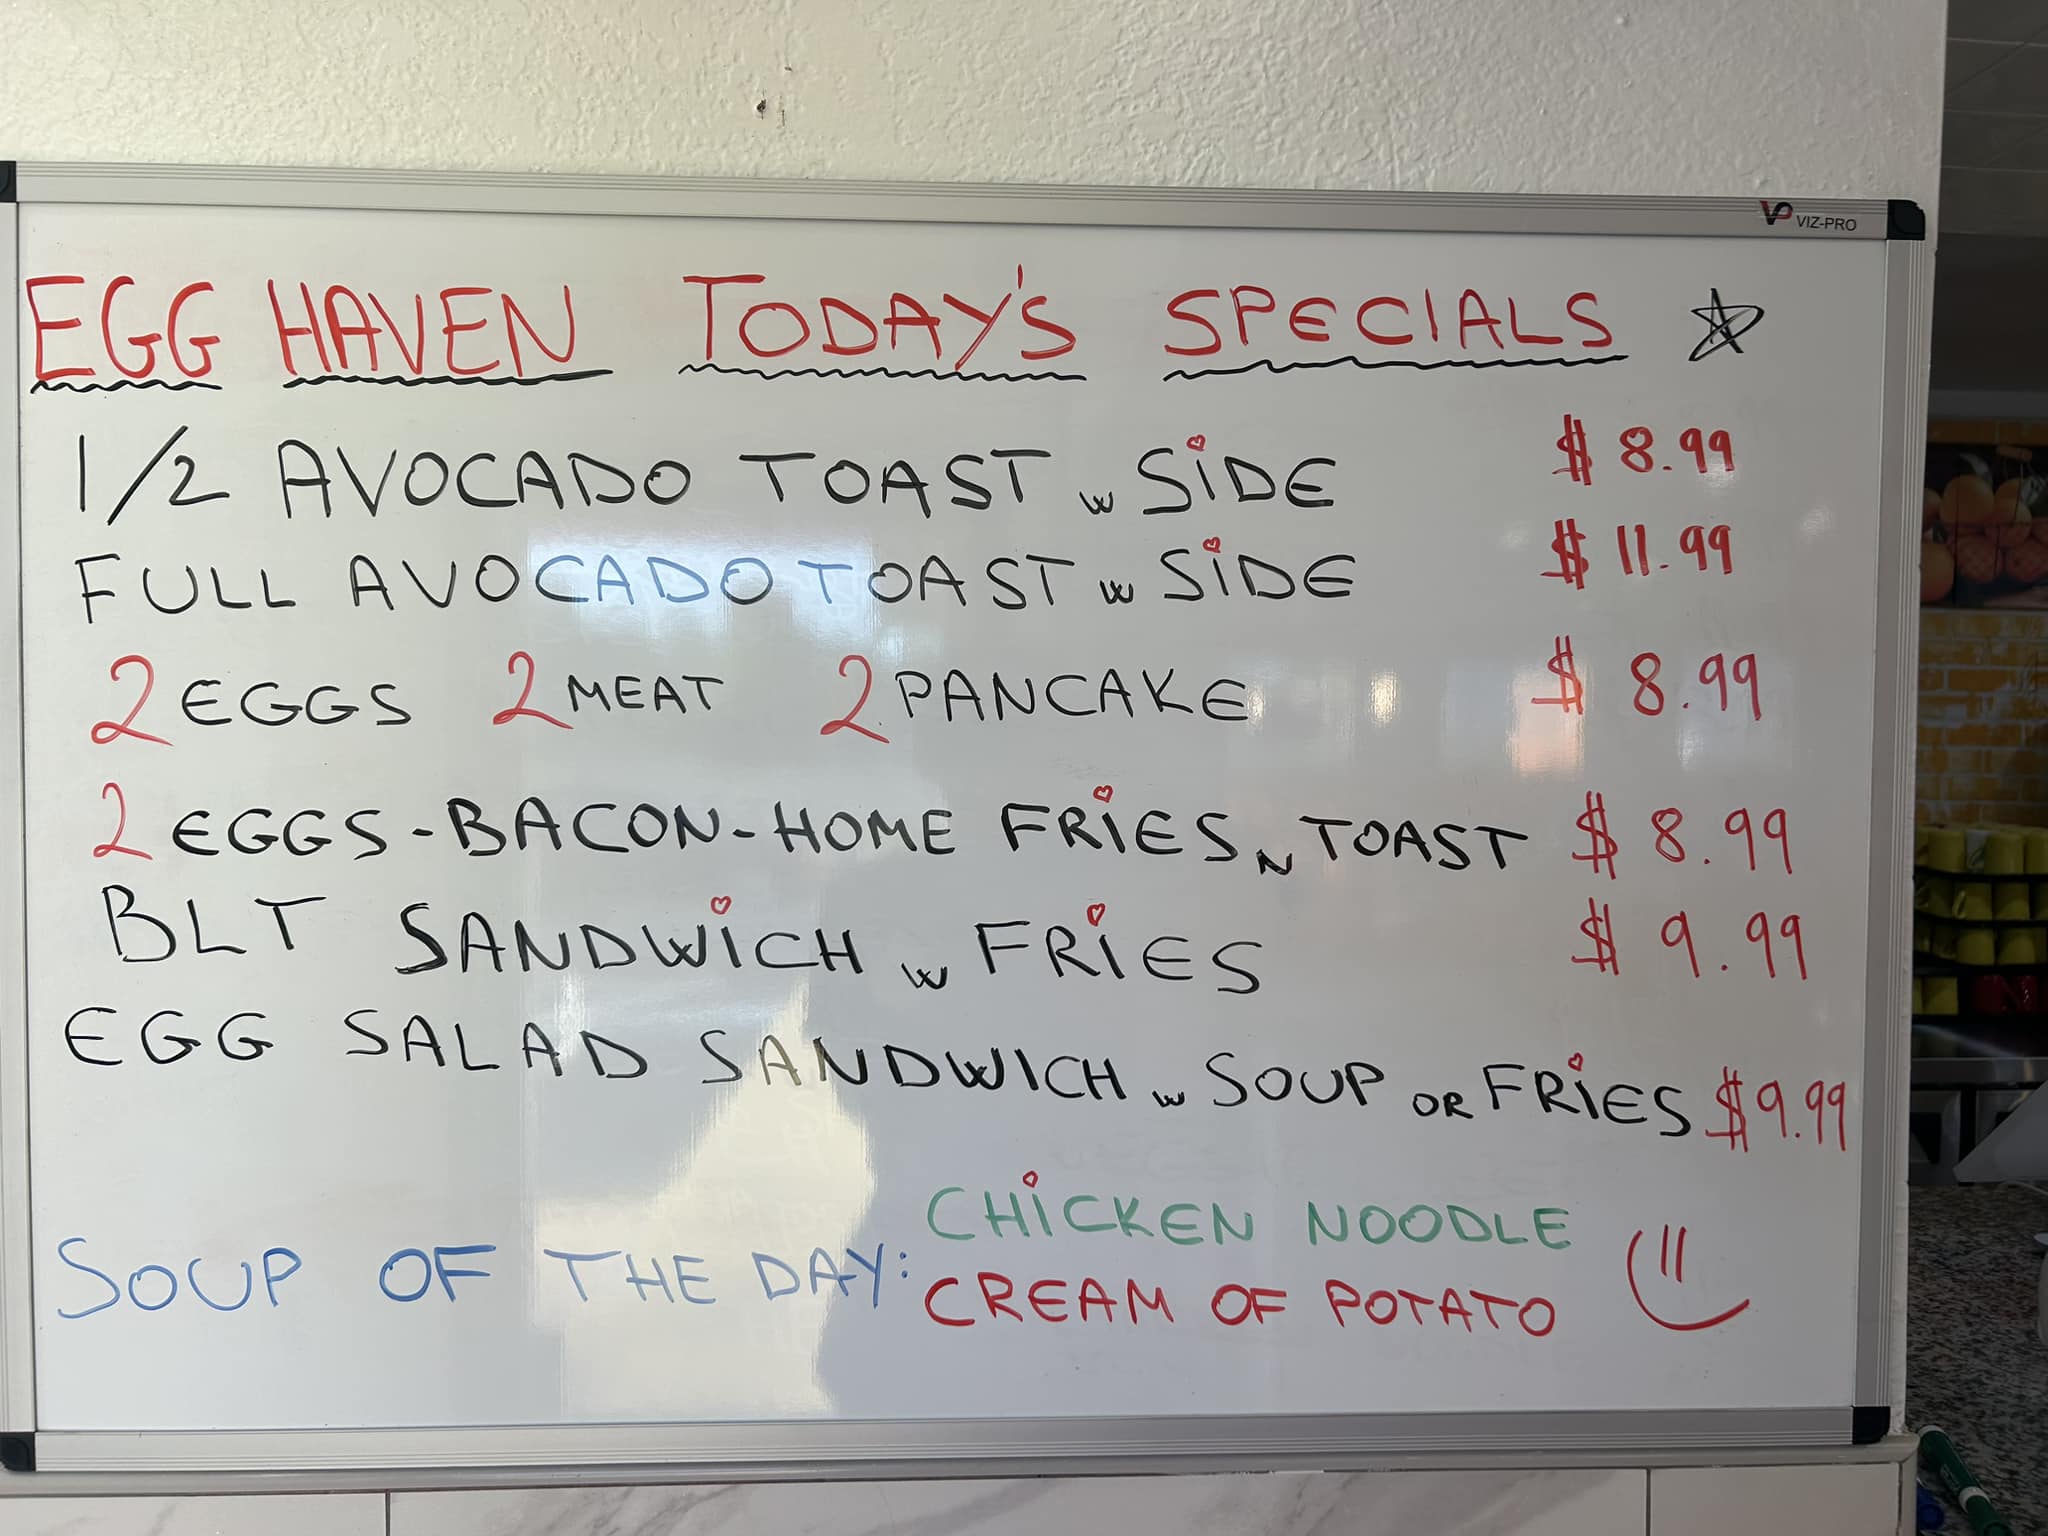 VIZ-PRO
EGG HAVEN TODAY'S SPECIALS
1/2 AVOCADO TOAST w SiDE $ 8.99
FULL AVOCADO TOAST w SiDE $ 11.99
2 EGGS 2 MEAT 2 PANCAKE $ 8.99
2 EGGS-BACON-HOME FRiES N TOAST $ 8.99
BLT SANDWiCH w FRiES $ 9.99
EGG SALAD SANDWICH w SOUP OR FRiES $9.99
SOUP OF THE DAY: CHiCKEN NOODLE
CREAM OF POTATO